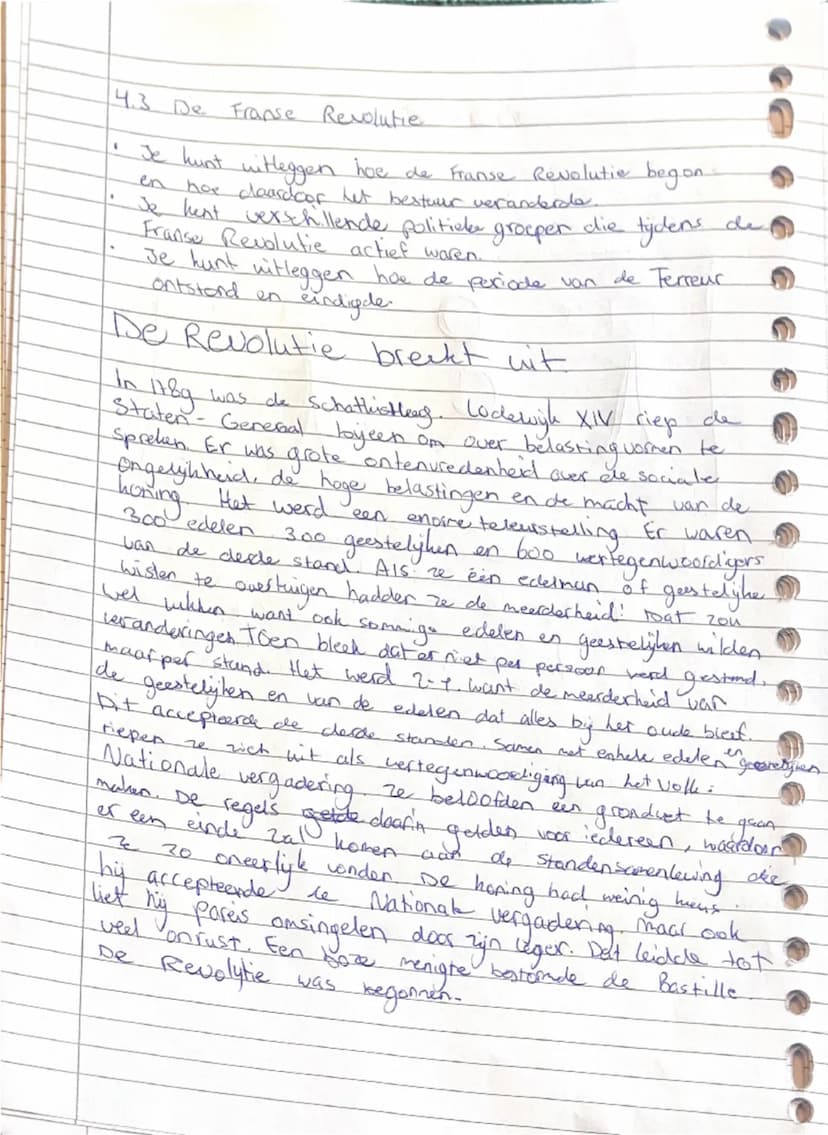 4.3 De Franse Revolutie
• Je kunt uitleggen hoe de Franse Revolutie begon
en hoe daardoor het bestuur veranderde.
• Je kent verschillende politieke groepen die tijdens de
Franse Revolutie actief waren.
• Je kunt uitleggen hoe de periode van de Terreur
ontstond en eindigde.
De Revolutie breekt uit
In 1789 was de schatkist leeg. Lodewijk XIV riep de
Staten-Generaal bijeen om over belastingvormen te
spreken. Er was grote ontenvredenheid over de sociale
ongelijkheid, de hoge belastingen en de macht van de
koning. Het werd een enorme teleurstelling. Er waren
300 edelen 300 geestelijken en 600 vertegenwoordigers
van de derde stand. Als ze één edelman of geestelijke
wisten te overtuigen hadden ze de meerderheid! Dat zou
wel lukken want ook sommige edelen en geestelijken wilden
veranderingen. Toen bleek dat er niet per persoon werd gestemd,
maar per stand. Het werd 2-1. want de meerderheid van
de geestelijken en van de edelen dat alles bij het oude bleef.
Dit accepteerde de derde standen. Samen met enkele edelen en geestelijken
riepen ze zich uit als vertegenwoordiging van het volk:
Nationale vergadering. Ze beloofden een grondwet te gaan
maken. De regels daarin gelden voor iedereen, waardoor
er een einde zal komen aan de standensamenleving die
ze zo oneerlijk vonden. De koning had weinig keus.
hij accepteerde de Nationale vergadering. Maar ook
liet hij Pareis omsingelen door zijn leger. Dat leidde tot
veel onrust. Een boze menigte bestormde de Bastille.
De Revolytie was begonnen.